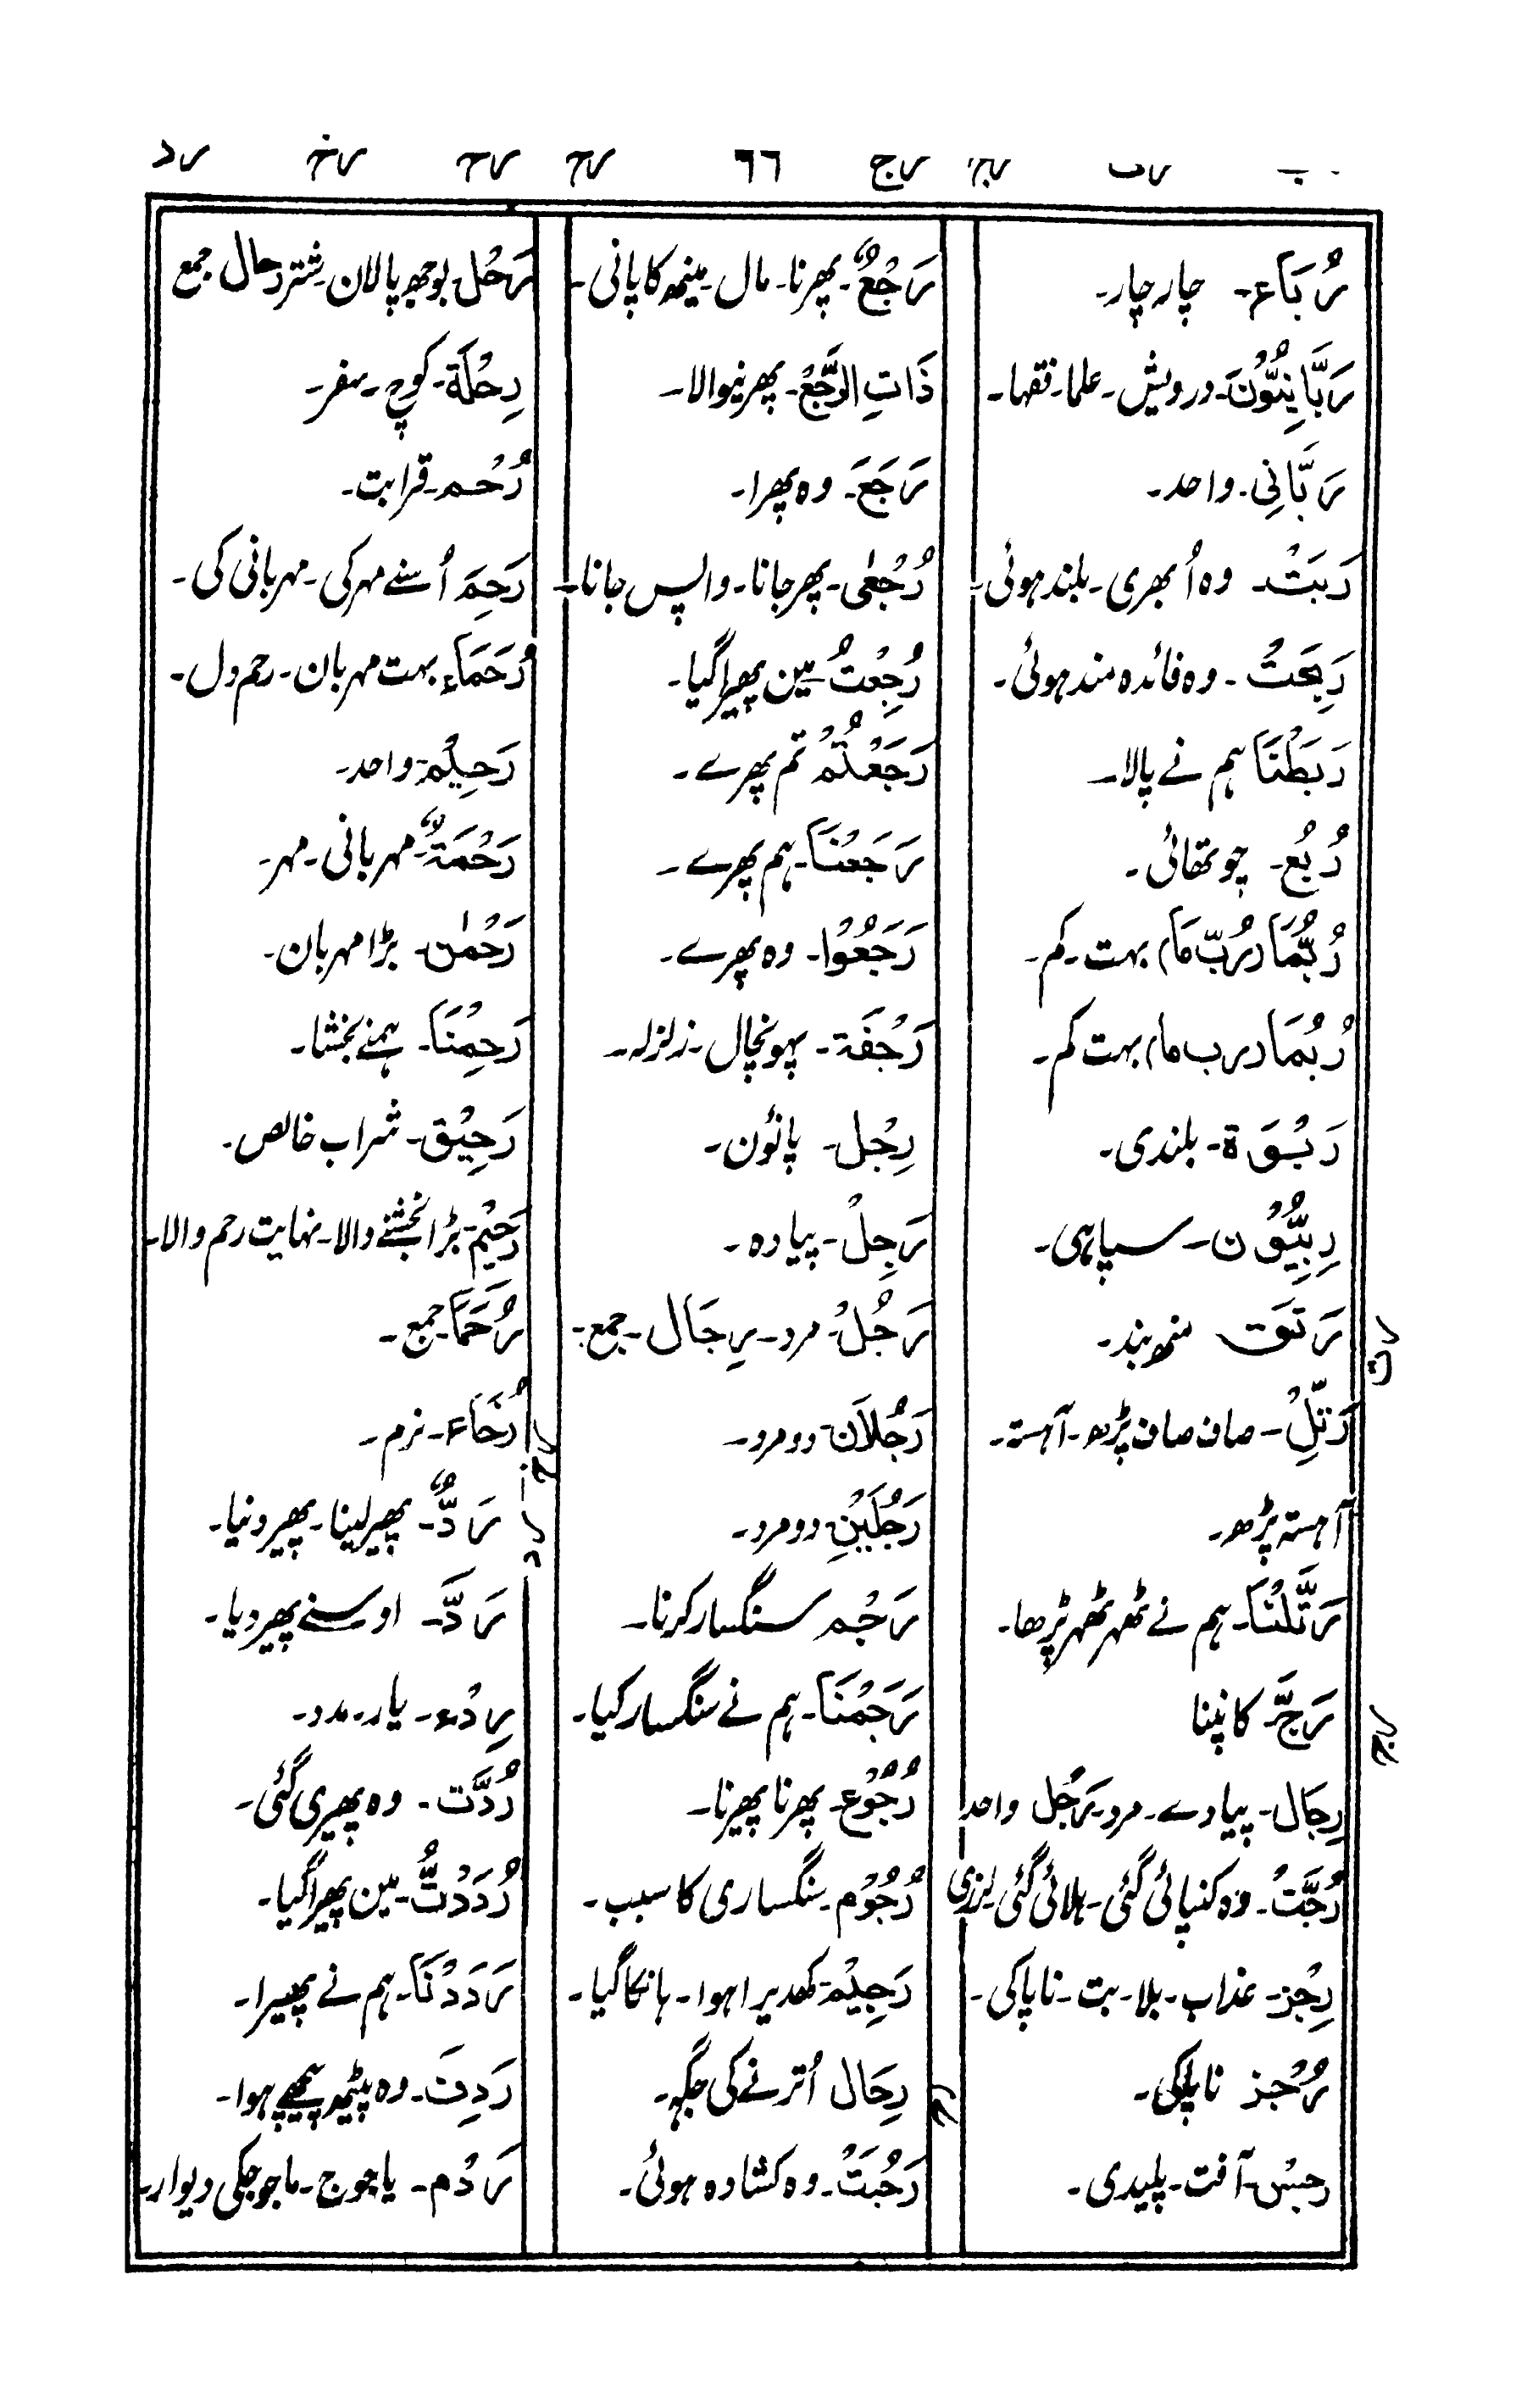 رب رب رج رج ٦٦ رح رح رخ رد
رُبَاع۔ چار چار۔
رَبَّانِیُّوْنَ۔ درویش۔ علما۔ فقہا۔
رَبَّانِی۔ واحد۔
رَبَتْ۔ وہ اُبھری۔ بلند ہوئی۔
رَبِحَتْ۔ وہ فائدہ مند ہوئی۔
رَبَطْنَا ہم نے پالا۔
رُبُع۔ چوتھائی۔
رُبَّمَا (رُبّ مَا) بہت۔ کم۔
رُبُمَا (رب ما) بہت کم۔
رَبْوَة۔ بلندی۔
رِبِیُّوْن۔ سپاہی۔
رَتَق منھ بند۔
رَتِّلْ۔ صاف صاف پڑھ۔ آہستہ۔
آہستہ پڑھ۔
رَتَّلْنَا۔ ہم نے ٹھہر ٹھہر پڑھا۔
رَجَّ۔ کانپنا
رِجَال۔ پیادے۔ مرد۔ رَجُل واحد
رُجَّتْ۔ وہ کنپائی گئی۔ ہلائی گئی لرزی
رِجْز۔ عذاب۔ بلا۔ بت۔ ناپاکی۔
رُجْز ناپاکی۔
رجس۔ آفت۔ پلیدی۔
رَجْعٌ۔ پھرنا۔ مال۔ مینھ کا پانی۔
ذَاتِ الرَّجْعِ۔ پھرنیوالا۔
رَجَعَ۔ وہ پھرا۔
رُجْعٰی۔ پھر جانا۔ واپس جانا۔
رُجِعْتُ۔ مین پھیرا گیا۔
رَجَعْتُمْ تم پھرے۔
رَجَعْنَا۔ ہم پھرے۔
رَجَعُوْا۔ وہ پھرے۔
رَجْفَة۔ پہونچال۔ زلزلہ۔
رِجْل۔ پائون۔
رَجِلْ۔ پیادہ۔
رَجُلْ۔ مرد۔ رِجَال۔ جمع۔
رَجُلَان۔ دو مرد۔
رَجُلَیْنِ دو مرد۔
رَجْم سنگسار کرنا۔
رَجَمْنَا۔ ہم نے سنگسار کیا۔
رُجُوْع۔ پھرنا پھیرنا۔
رُجُوْم۔ سنگساری کا سبب۔
رَجِیْم۔ کھدیرا ہوا۔ ہانکا گیا۔
رِحَال اُترنے کی جگہ۔
رَحُبَتْ۔ وہ کشادہ ہوئی۔
رَحْل بوجھ پالان شتر رحال جمع
رِحْلَة۔ کوچ۔ سفر۔
رُحْم۔ قرابت۔
رَحِمَ اُسنے مہر کی۔ مہربانی کی۔
رُحَمَاء بہت مہربان۔ رحم دل۔
رَحِیْم۔ واحد۔
رَحْمَةٌ۔ مہربانی۔ مہر۔
رَحْمٰن۔ بڑا مہربان۔
رَحِمْنَا۔ ہمنے بخشا۔
رَحِیْق۔ شراب خالص۔
رَحِیْم۔ بڑا بخشنے والا۔ نہایت رحم والا۔
رُحَمَا۔ جمع۔
رُخَاء۔ نرم۔
رَدٌّ۔ پھیر لینا۔ پھیر دینا۔
رَدَّ۔ اوسنے پھیر دیا۔
رِدْء۔ یار۔ مدد۔
رُدَّت۔ وہ پھیری گئی۔
رُدِدْتُّ۔ مین پھیرا گیا۔
رَدَدْنَا۔ ہم نے پھیرا۔
رَدِفَ۔ وہ پیٹھ پیچھے ہوا۔
رَدْم۔ یاجوج۔ ماجوجکی دیوار۔
رت
رج
رح
رخ
رد